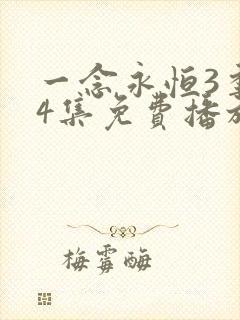 一念永恒3
4集免費播放
梅霉酶